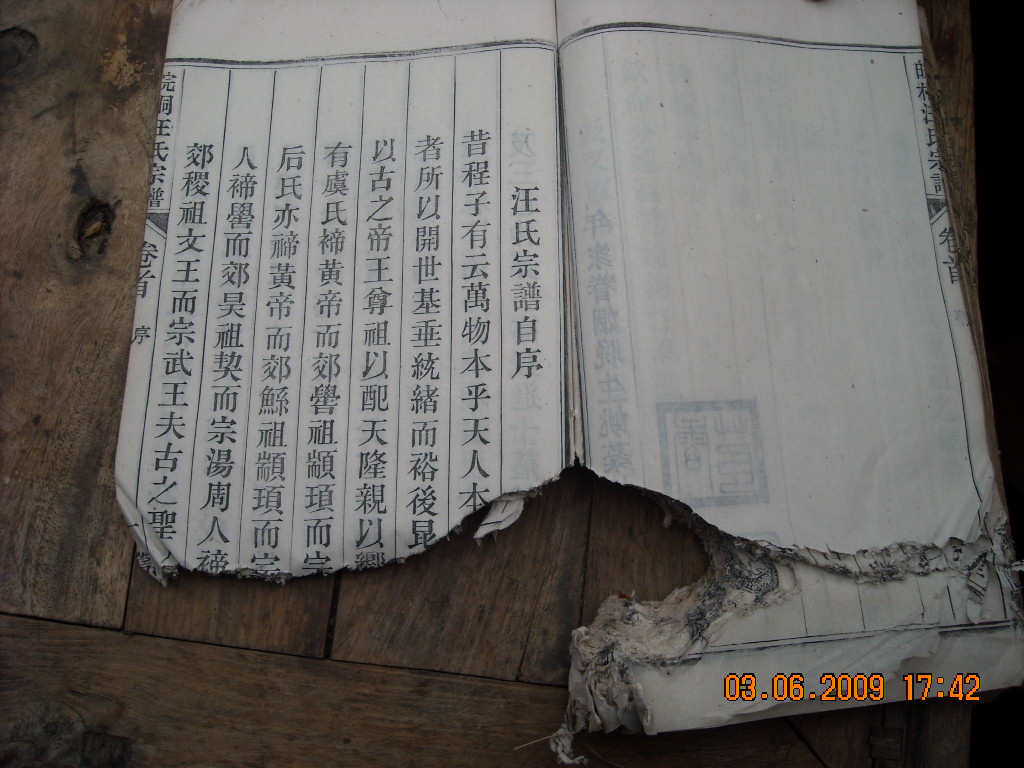 汪氏宗譜
卷首
汪氏宗譜自序
昔程子有云萬物本乎天人本
者所以開世基垂統緒而裕後昆
以古之帝王尊祖以配天隆親以饗
有虞氏禘黃帝而郊嚳祖顓頊而宗
后氏亦禘黃帝而郊鯀祖顓頊而宗
人禘嚳而郊昊祖契而宗湯周人禘
郊稷祖文王而宗武王夫古之聖
皖桐汪氏宗譜
卷首
序
03.06.2009 17:42